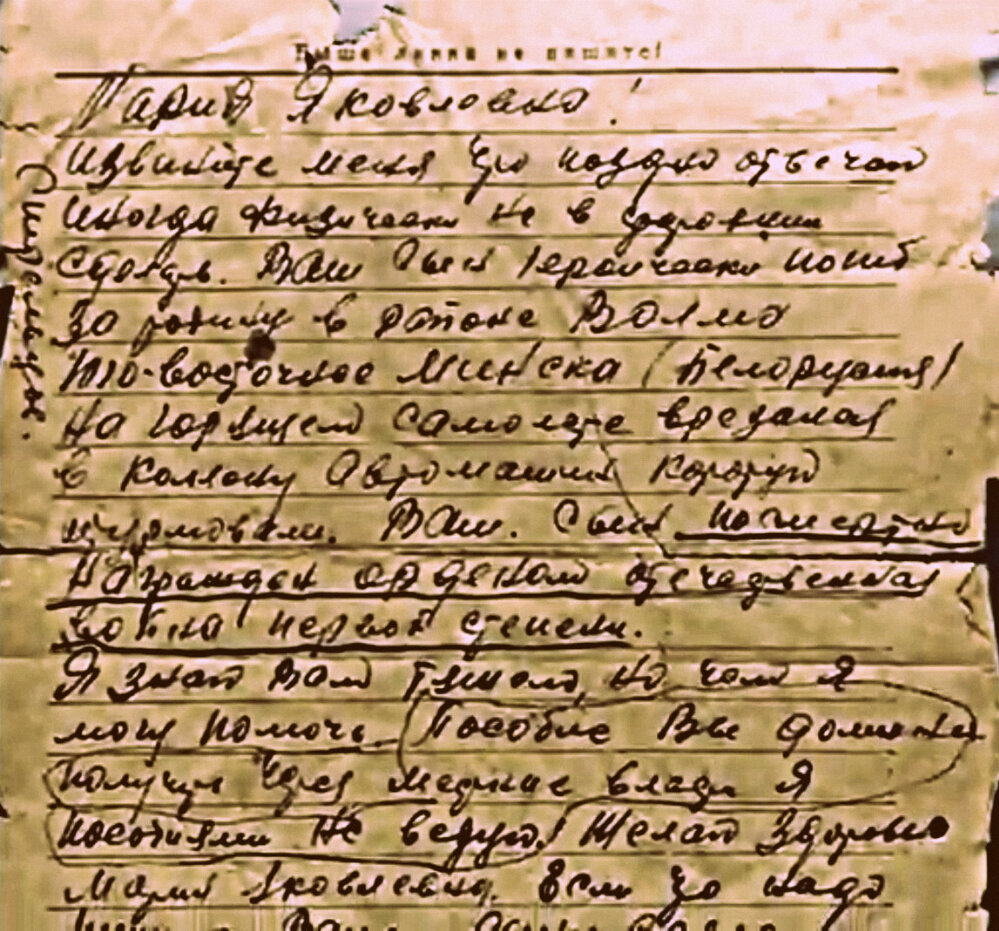 Выше линии не пишите!
Мария Яковлевна!
Извините меня что поздно отвечаю
иногда физически не в
Ваш Сын Героически погиб
За родину в районе Волма
Юго-восточнее Минска (Белоруссия)
На горящем самолете врезался
в Колонну Автомашин которую
штурмовали. Ваш. Сын посмертно
Награжден орденом отечественная
война первой степени.
Я знаю Вам тяжело, но чем я
могу помочь. Пособие Вы должны
получить через местные власти я
пособиями не ведую! Желаю Здоровья
Мария Яковлевна. Если что надо